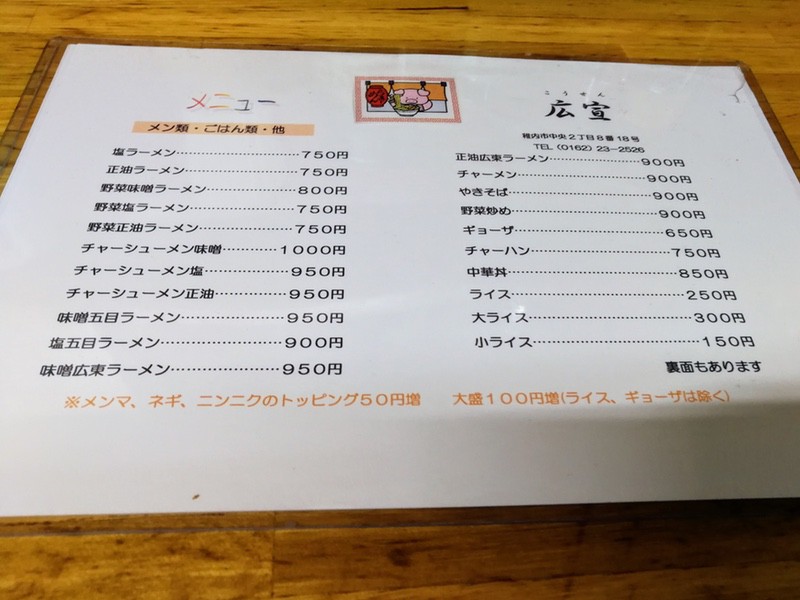 メニュー
メン類・ごはん類・他
塩ラーメン……………………750円
正油ラーメン…………………750円
野菜味噌ラーメン……………800円
野菜塩ラーメン………………750円
野菜正油ラーメン……………750円
チャーシューメン味噌………1000円
チャーシューメン塩…………950円
チャーシューメン正油………950円
味噌五目ラーメン……………950円
塩五目ラーメン………………900円
味噌広東ラーメン……………950円
こうせん
広宣
稚内市中央2丁目8番18号
TEL (0162) 23-2526
正油広東ラーメン……………900円
チャーメン……………………900円
やきそば………………………900円
野菜炒め………………………900円
ギョーザ………………………650円
チャーハン……………………750円
中華丼…………………………850円
ライス…………………………250円
大ライス………………………300円
小ライス………………………150円
裏面もあります
※メンマ、ネギ、ニンニクのトッピング50円増 大盛100円増(ライス、ギョーザは除く)